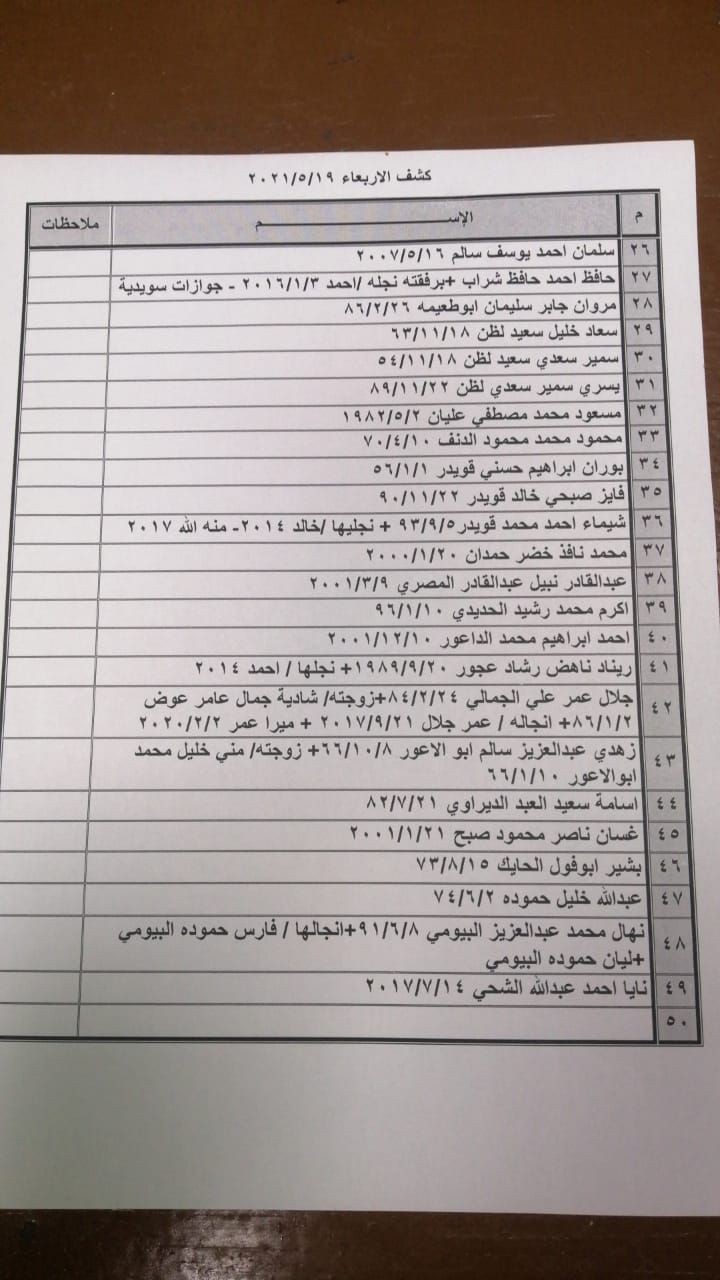 كشف الاربعاء ٢٠٢١/٥/١٩
م الإســـــــــم ملاحظات
٢٦ سلمان احمد يوسف سالم ٢٠٠٧/٥/١٦
٢٧ حافظ احمد حافظ شراب +برفقته نجله /احمد ٢٠١٦/١/٣ - جوازات سويدية
٢٨ مروان جابر سليمان ابوطعيمه ٨٦/٢/٢٦
٢٩ سعاد خليل سعيد لظن ٦٣/١١/١٨
٣٠ سمير سعدي سعيد لظن ٥٤/١١/١٨
٣١ يسري سمير سعدي لظن ٨٩/١١/٢٢
٣٢ مسعود محمد مصطفي عليان ١٩٨٢/٥/٢
٣٣ محمود محمد محمود الدنف ٧٠/٤/١٠
٣٤ بوران ابراهيم حسني قويدر ٥٦/١/١
٣٥ فايز صبحي خالد قويدر ٩٠/١١/٢٢
٣٦ شيماء احمد محمد قويدر٩٣/٩/٥ + نجليها /خالد ٢٠١٤- منه الله ٢٠١٧
٣٧ محمد نافذ خضر حمدان ٢٠٠٠/١/٢٠
٣٨ عبدالقادر نبيل عبدالقادر المصري ٢٠٠١/٣/٩
٣٩ اكرم محمد رشيد الحديدي ٩٦/١/١٠
٤٠ احمد ابراهيم محمد الداعور ٢٠٠١/١٢/١٠
٤١ ريناد ناهض رشاد عجور ١٩٨٩/٩/٢٠+ نجلها / احمد ٢٠١٤
٤٢ جلال عمر علي الجمالي ٨٤/٢/٢٤+زوجته/ شادية جمال عامر عوض
٨٦/١/٢+ انجاله / عمر جلال ٢٠١٧/٩/٢١ + ميرا عمر ٢٠٢٠/٢/٢
٤٣ زهدي عبدالعزيز سالم ابو الاعور ٦٦/١٠/٨+ زوجته/ مني خليل محمد
ابوالاعور ٦٦/١/١٠
٤٤ اسامة سعيد العبد الديراوي ٨٢/٧/٢١
٤٥ غسان ناصر محمود صبح ٢٠٠١/١/٢١
٤٦ بشير ابوفول الحايك ٧٣/٨/١٥
٤٧ عبدالله خليل حموده ٧٤/٦/٢
٤٨ نهال محمد عبدالعزيز البيومي ٩١/٦/٨+انجالها / فارس حموده البيومي
+ليان حموده البيومي
٤٩ نايا احمد عبدالله الشحي ٢٠١٧/٧/١٤
٥٠